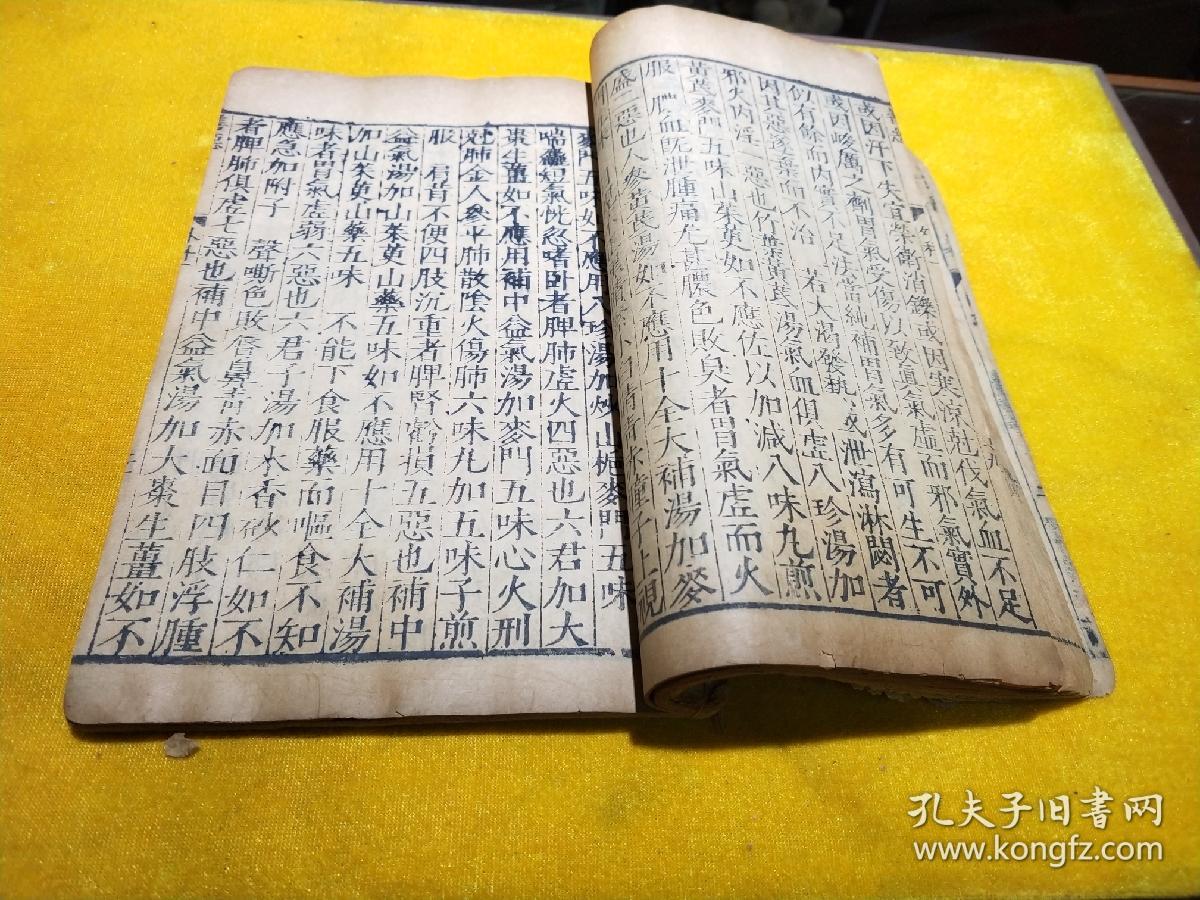 或因汗下失宜榮衛消鑠或因寒涼尅伐氣血不足
或因峻厲之劑胃氣受傷以致真氣虛而邪氣實外
似有餘而内實不足法當純補胃氣多有可生不可
因其惡遂棄而不治 若大渴發熱或泄瀉淋閟者
邪火内淫一惡也竹葉黃芪湯氣血俱虛八珍湯加
黃芪麥門五味山茱萸如不應佐以加減八味丸煎
服 膿血既泄腫痛尤甚膿色敗臭者胃氣虛而火
盛二惡也人參黃芪湯如不應用十全大補湯加麥
睛子上視
麥門五味如不應用八珍湯加炒山梔麥門五味
喘麤短氣恍惚嗜卧者脾肺虛火四惡也六君加大
棗生薑如不應用補中益氣湯加麥門五味心火刑
尅肺金人參平肺散陰火傷肺六味丸加五味子煎
服 肩背不便四肢沉重者脾腎虧損五惡也補中
益氣湯加山茱萸山藥五味如不應用十全大補湯
加山茱萸山藥五味 不能下食服藥而嘔食不知
味者胃氣虛弱六惡也六君子湯加木香砂仁如不
應急加附子 聲嘶色敗唇鼻青赤面目四肢浮腫
者脾肺俱虛七惡也補中益氣湯加大棗生薑如不
孔夫子旧书网
www.kongfz.com